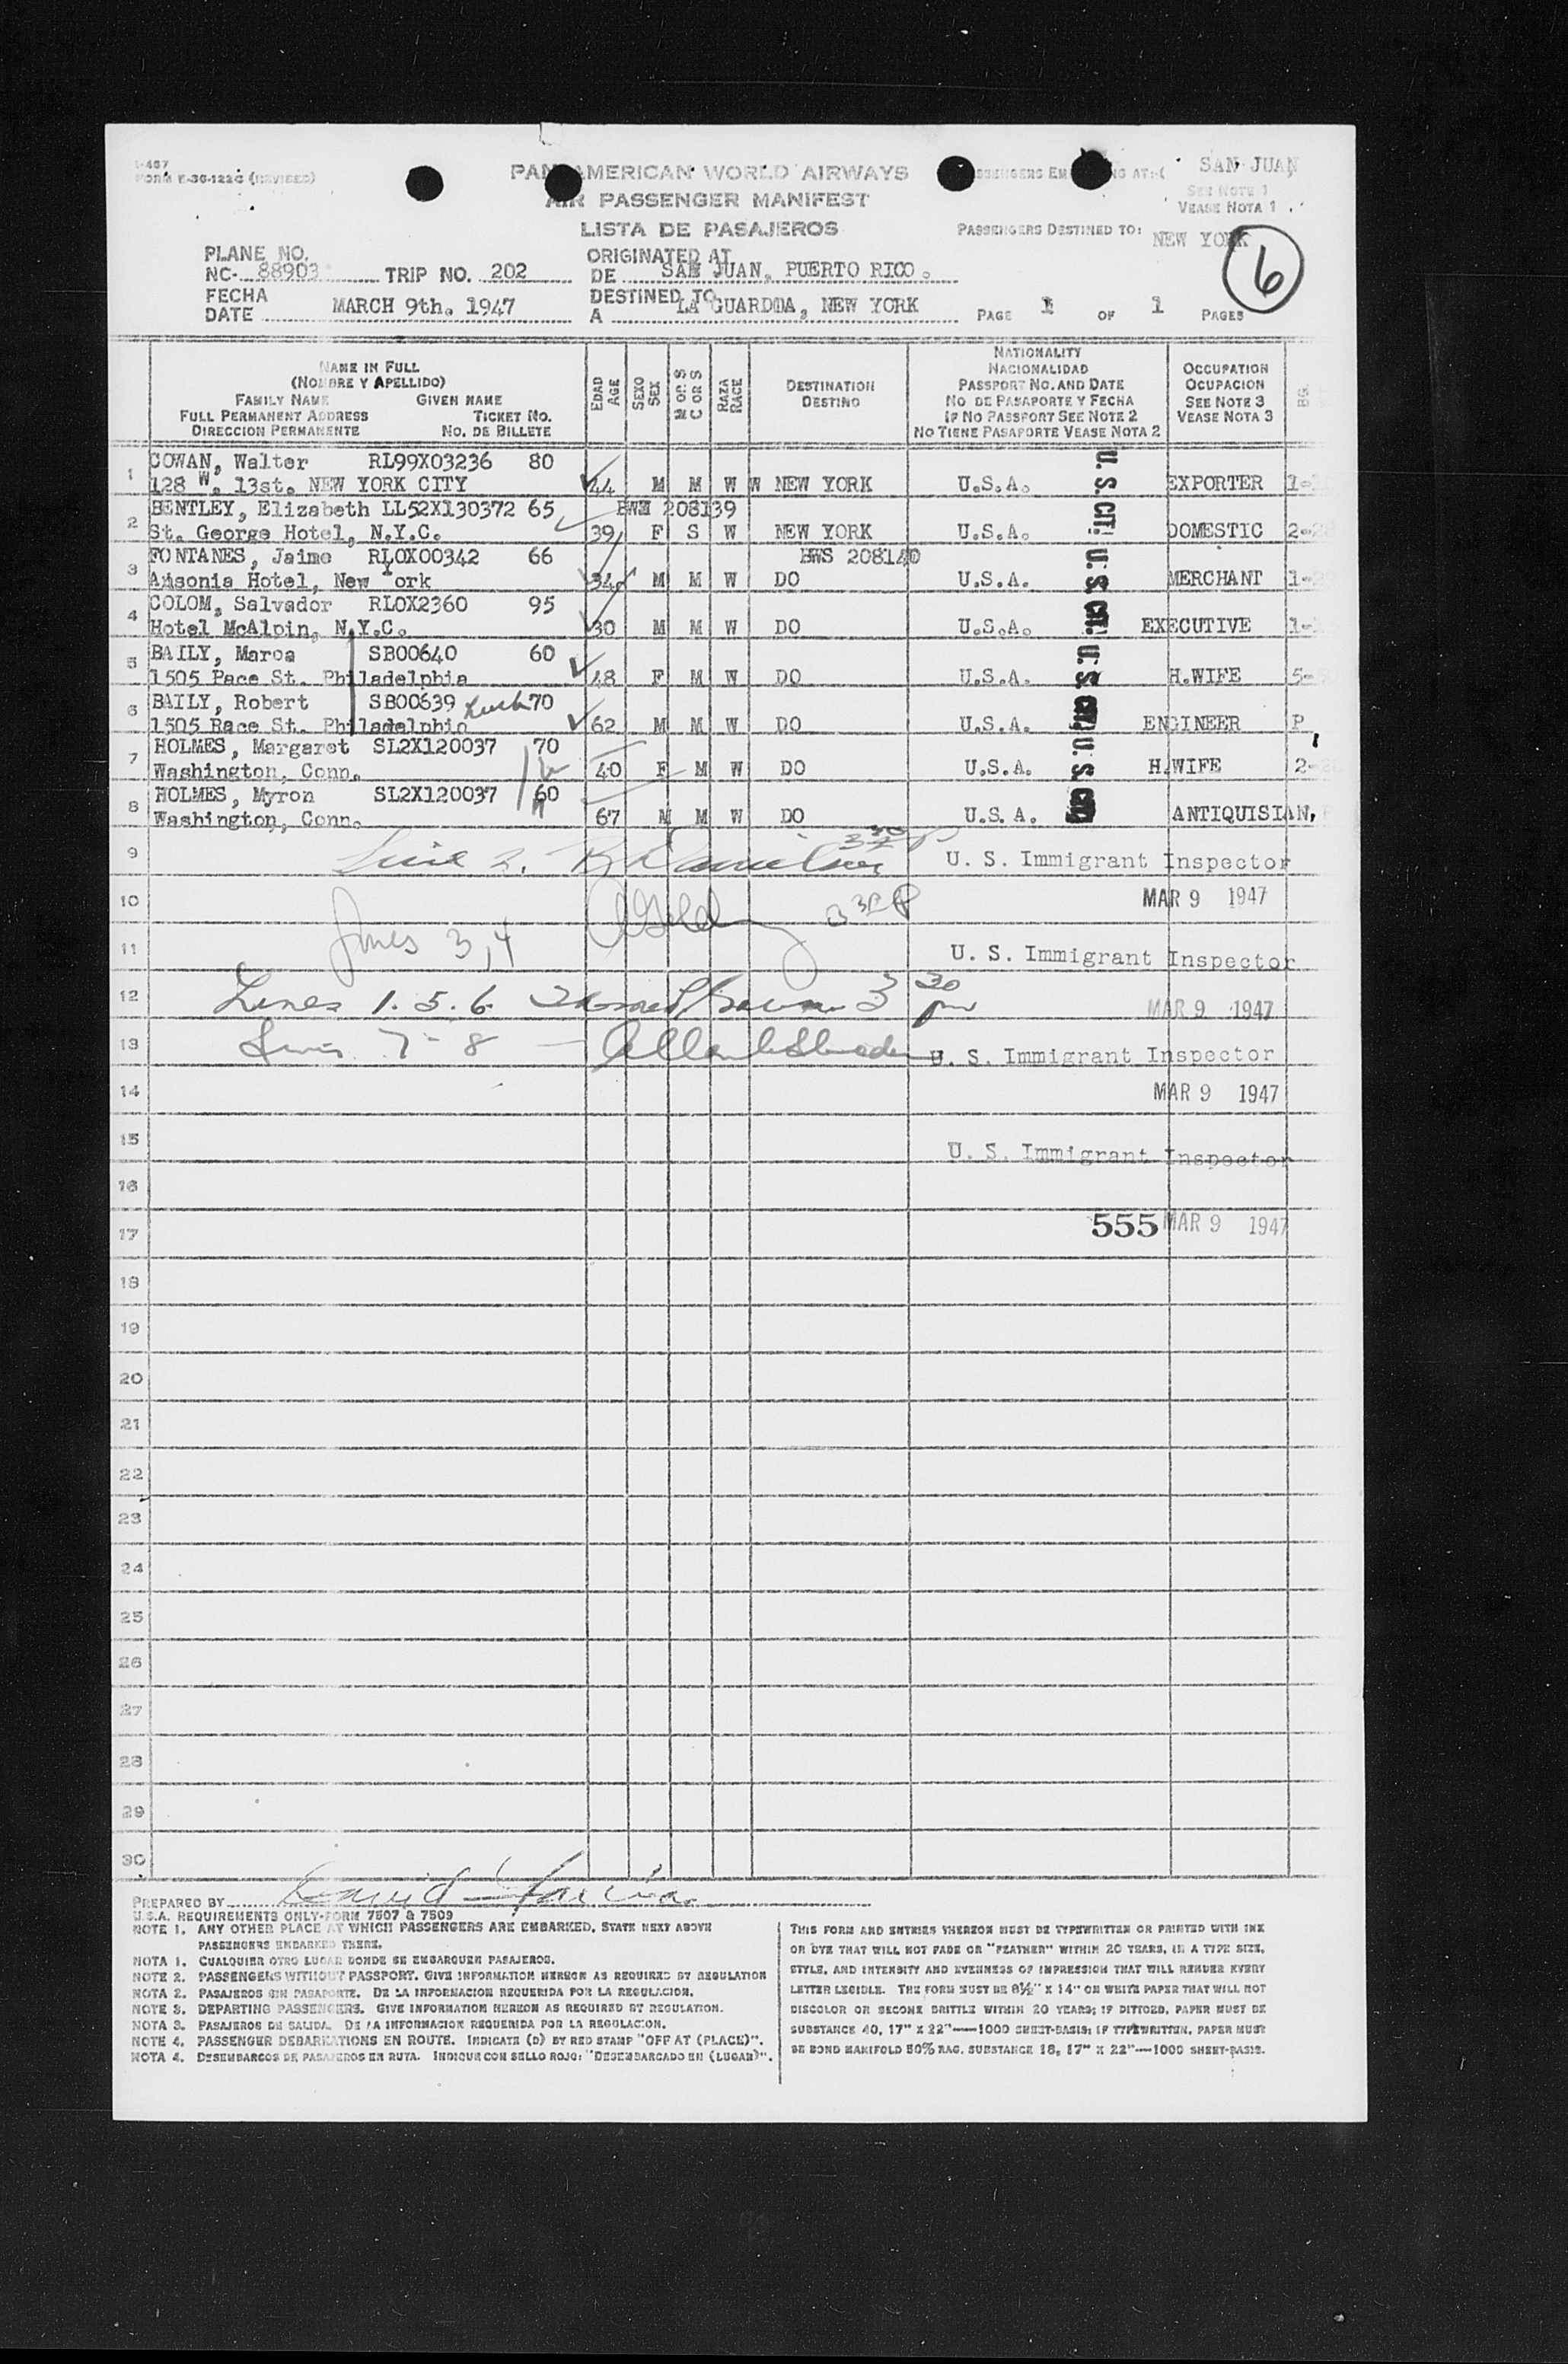 I-467
FORM E-36-122G (REVISED)
PAN AMERICAN WORLD AIRWAYS
AIR PASSENGER MANIFEST
LISTA DE PASAJEROS
PASSENGERS EMBARKING AT:-( SAN JUAN
SEE NOTE 1
VEASE NOTA 1
PASSENGERS DESTINED TO: NEW YORK
6
PLANE NO.
NC- 88903 TRIP NO. 202
ORIGINATED AT
DE SAN JUAN, PUERTO RICO.
FECHA
DATE MARCH 9th. 1947
DESTINED TO
A LA GUARDIA, NEW YORK
PAGE 1 OF 1 PAGES
NAME IN FULL
(NOMBRE Y APELLIDO)
FAMILY NAME GIVEN NAME
FULL PERMANENT ADDRESS TICKET NO.
DIRECCION PERMANENTE NO. DE BILLETE
EDAD AGE
SEXO SEX
M OR S C OR S
RAZA RACE
DESTINATION
DESTINO
NATIONALITY
NACIONALIDAD
PASSPORT NO. AND DATE
NO DE PASAPORTE Y FECHA
IF NO PASSPORT SEE NOTE 2
NO TIENE PASAPORTE VEASE NOTA 2
OCCUPATION
OCUPACION
SEE NOTE 3
VEASE NOTA 3
BG.
1 COWAN, Walter RL99X03236 80
128 W. 13st. NEW YORK CITY 44 M M W W NEW YORK U.S.A. U. S. CIT. EXPORTER 1-
2 BENTLEY, Elizabeth LL52X130372 65 208139
St. George Hotel, N.Y.C. 39 F S W NEW YORK U.S.A. DOMESTIC 2-
3 FONTANES, Jaime RLOX00342 66 BWS 208140
Ansonia Hotel, New York 34 M M W DO U.S.A. U. S. CIT. MERCHANT 1-
4 COLOM, Salvador RLOX2360 95
Hotel McAlpin, N.Y.C. 30 M M W DO U.S.A. EXECUTIVE 1-
5 BAILY, Maroa SB00640 60
1505 Pace St. Philadelphia 48 F M W DO U.S.A. U. S. CIT. H.WIFE 5-
6 BAILY, Robert SB00639 70
1505 Race St. Philadelphia 62 M M W DO U.S.A. ENGINEER P
7 HOLMES, Margaret SL2X120037 70
Washington, Conn. 40 F M W DO U.S.A. U. S. CIT. H.WIFE 2-
8 HOLMES, Myron SL2X120037 60
Washington, Conn. 67 M M W DO U.S.A. ANTIQUISIAN,
9 Line 2. U. S. Immigrant Inspector
10 3 30 P MAR 9 1947
11 Lines 3,4 U. S. Immigrant Inspector
12 Lines 1. 5. 6. 3 30 pm MAR 9 1947
13 Lines 7-8 U. S. Immigrant Inspector
14 MAR 9 1947
15 U. S. Immigrant Inspector
16
17 555 MAR 9 1947
18
19
20
21
22
23
24
25
26
27
28
29
30
PREPARED BY David Garcia
U.S.A. REQUIREMENTS ONLY-FORM 7507 & 7509
NOTE 1. ANY OTHER PLACE AT WHICH PASSENGERS ARE EMBARKED, STATE NEXT ABOVE
PASSENGERS EMBARKED THERE.
NOTA 1. CUALQUIER OTRO LUGAR DONDE SE EMBARQUEN PASAJEROS.
NOTE 2. PASSENGERS WITHOUT PASSPORT. GIVE INFORMATION HEREON AS REQUIRED BY REGULATION
NOTA 2. PASAJEROS SIN PASAPORTE. DE LA INFORMACION REQUERIDA POR LA REGULACION.
NOTE 3. DEPARTING PASSENGERS. GIVE INFORMATION HEREON AS REQUIRED BY REGULATION.
NOTA 3. PASAJEROS DE SALIDA. DE LA INFORMACION REQUERIDA POR LA REGULACION.
NOTE 4. PASSENGER DEBARKATIONS EN ROUTE. INDICATE (D) BY RED STAMP "OFF AT (PLACE)".
NOTA 4. DESEMBARCOS DE PASAJEROS EN RUTA. INDIQUE CON SELLO ROJO: "DESEMBARCADO EN (LUGAR)".
THIS FORM AND ENTRIES THEREON MUST BE TYPEWRITTEN OR PRINTED WITH INK
OR DYE THAT WILL NOT FADE OR "FEATHER" WITHIN 20 YEARS, IN A TYPE SIZE,
STYLE, AND INTENSITY AND EVENNESS OF IMPRESSION THAT WILL RENDER EVERY
LETTER LEGIBLE. THE FORM MUST BE 8½" X 14" ON WHITE PAPER THAT WILL NOT
DISCOLOR OR BECOME BRITTLE WITHIN 20 YEARS; IF DITTOED, PAPER MUST BE
SUBSTANCE 40, 17" X 22"—1000 SHEET-BASIS; IF TYPEWRITTEN, PAPER MUST
BE BOND MANIFOLD 50% RAG, SUBSTANCE 18, 17" X 22"—1000 SHEET-BASIS.